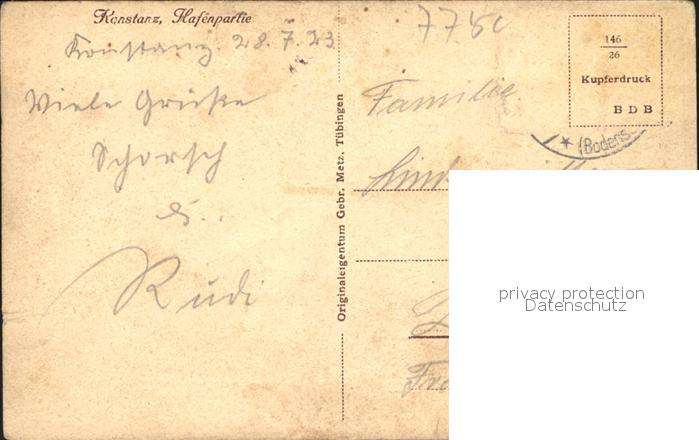 Konstanz, Hafenpartie
Konstanz. 28.7.23
Viele Grüße
Schorsch
&
Rudi
Originaleigentum Gebr. Metz, Tübingen
775c
146
26
Kupferdruck
B D B
(Bodens
Familie
privacy protection
Datenschutz